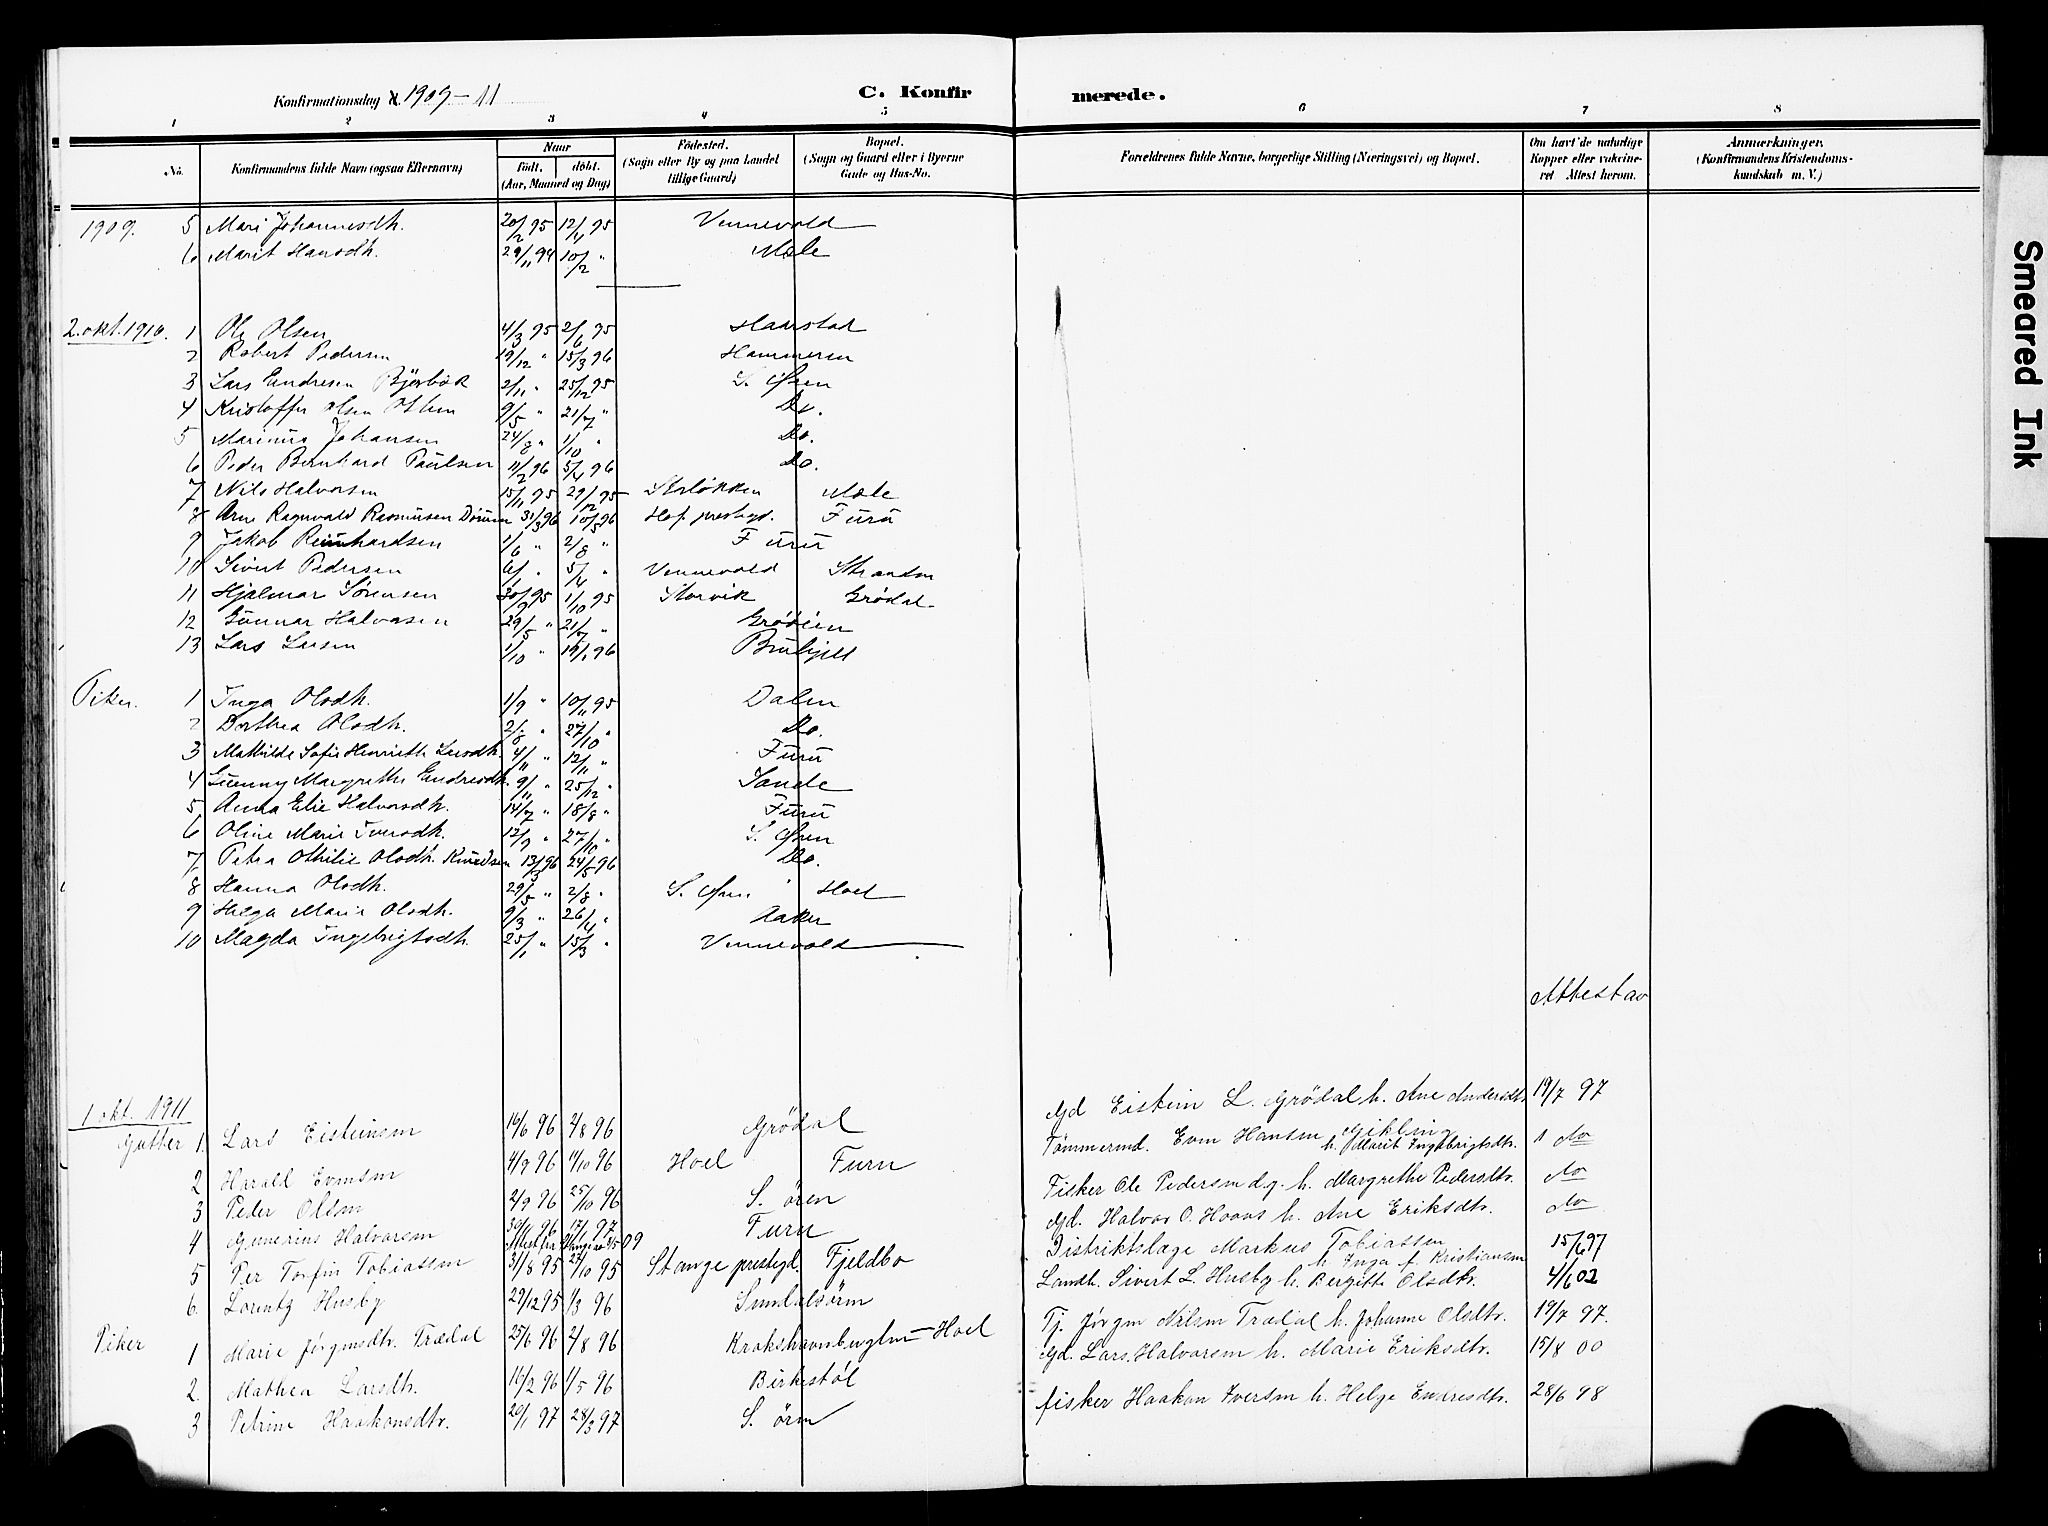 Konfirmationsdag d. 1909-11
C. Konfir merede.
1 2 3 4 5 6 7 8
No. Konfirmandens fulde Navn (ogsaa Efternavn) Naar født. døbt. (Aar, Maaned og Dag) Fødested. (Sogn eller By og paa Landet tillige Gaard) Bopæl. (Sogn og Gaard eller i Byerne Gade og Hus-No. Forældrenes fulde Navne, borgerlige Stilling (Næringsvei) og Bopæl. Om havt de naturlige Kopper eller vakcineret Attest herom. Anmerkninger. (Konfirmandens Kristendomskundskab m. V.)
1909. 5 Mari Johannesdh. 20/2 95 12/4 95 Vennevold
6 Marit Hansdh. 29/11 94 10/2 " Mæle
2. okt. 1910. 1 Ole Olsen 4/3 95 2/6 95 Haarstad
2 Robert Pedersen 19/12 " 15/3 96 Hammeren
3 Lars Endresen Bjørbæk 2/11 " 25/12 95 S. Øren
4 Kristoffer Olsen 9/5 " 21/7 " Do.
5 Marinus Johansen 24/8 " 1/10 " Do.
6 Peder Bernhard Paulsen 11/2 96 5/4 96 Do.
7 Nils Halvorsen 15/11 95 29/12 95 Mæle
8 Arne Ragnvald Rasmussen 31/3 96 10/5 96 Hof prestegd. Furu
9 Jakob Reinhardsen 1/6 " 2/8 " Furu
10 Sivert Pedersen 6/1 " 5/4 " Vennevold Stranden
11 Hjalmar Sørensen 30/9 95 1/10 95 Storvik Grødal
12 Gunnar Halvorsen 29/5 " 21/7 " Grødeien
13 Lars Larsen 1/10 " 19/1 96
Piker. 1 Inga Olsdh. 1/9 " 10/11 95 Dalen
2 Dorthea Olsdh. 2/8 " 27/10 " Do.
3 Mathilde Sofie Henriette Larsdh. 4/11 " 12/11 " Furu
4 Gunny Margrethe Endresdh. 9/11 " 25/12 " Sande
5 Anna Elie Halvorsdh. 14/7 " 18/8 " Furu
6 Oline Marie Iversdh. 12/9 " 27/10 " S. Øren
7 Petra Othilie Olsdh. Knudsen 13/3 96 24/5 96 Do.
8 Hanna Olsdh. 29/5 " 2/8 " S. Øren Hoel
9 Helga Marie Olsdh. 9/3 " 26/4 " Aaker
10 Magda Ingebrigtsdh. 25/1 " 15/3 " Vennevold
Attest av
1 okt. 1911
Gutter 1. Lars Eisteinsen 19/6 96 2/8 96 Grödal Gd Eistein L. Grödal h. Ane Andersdtr 19/7 97
2 Harald Evensen 4/9 96 11/10 96 Hoel Furu Tömmermd. Even Hansen Gikling h. Marit Ingebrigtsdtr. do
3 Peder Olsen 2/9 96 25/10 96 S. ören Fisker Ole Pedersen d.y. h. Margrethe Pedersdtr. do
4 Gunerius Halvorsen 30/11 96 17/1 97 Furu Gd. Halvor O. Hoaas h. Ane Eriksdtr. do
5 Per Torfin Tobiassen 31/8 95 27/10 95 Stange prestegd. Fjeldbo Distriktslæge Markus Tobiassen h. Inga f. Kristiansen 15/6 97
6. Lorentz Husby 29/12 95 1/3 96 Sundalsören Landh. Sivert L. Husby h. Bergitte Olsdtr. 4/6 02
Piker 1 Marie Jørgensdtr. Trædal 25/6 96 2/8 96 Hoel Tj. Jörgen Nilsen Trædal h. Johanne Olsdtr. 19/7 97.
2. Mathea Larsdtr. 16/2 96 1/5 96 Birkestöl Gd. Lars Halvorsen h. Marie Eriksdtr. 15/8 00
3 Petrine Haakonsdtr. 20/1 97 28/3 97 S. ören fisker Haakon Iversen h. Helge Endresdtr. 28/6 98
Smeared Ink